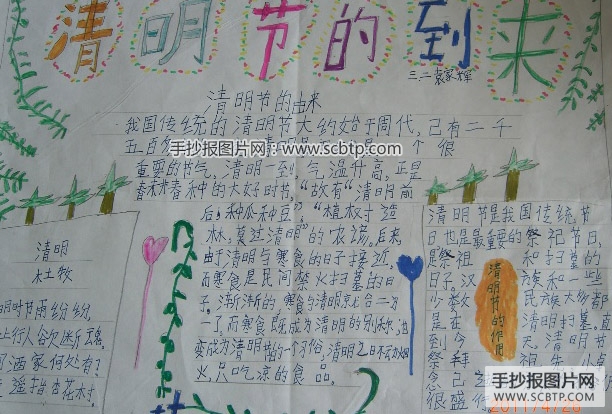 清明节的到来
三.二袁家辉
清明节的由来
我国传统的清明节大约始于周代,已有二千
五百多
手抄报图片网
www.scbtp.com
个很
重要的节气,清明一到,气温升高,正是
春耕春种的大好时节,"故有"清明前
后,种瓜种豆","植树造
林,莫过清明"的农谚。后来
由于清明与寒食的日子接近,
而寒食是民间禁火扫墓的日
子,渐渐的,寒食与清明就合二为
一了,而寒食既成为清明的别称,也
变成为清明节的一个习俗,清明之日不动烟
火,只吃凉的食品。
清明
杜牧
明时节雨纷纷,
上行人欲断魂。
酒家何处有?
遥指杏花村
清明节是我国传统节
日也是最重要的祭祀节日,
是祭祖和扫墓的
日子。汉族和一些
少数民族大都
是在清明扫墓。直
到今天,清明节
祭拜祖先
念己
很盛
清明节的作用
手抄报图片网
WWW.SCBTP.COM
2011/4/26